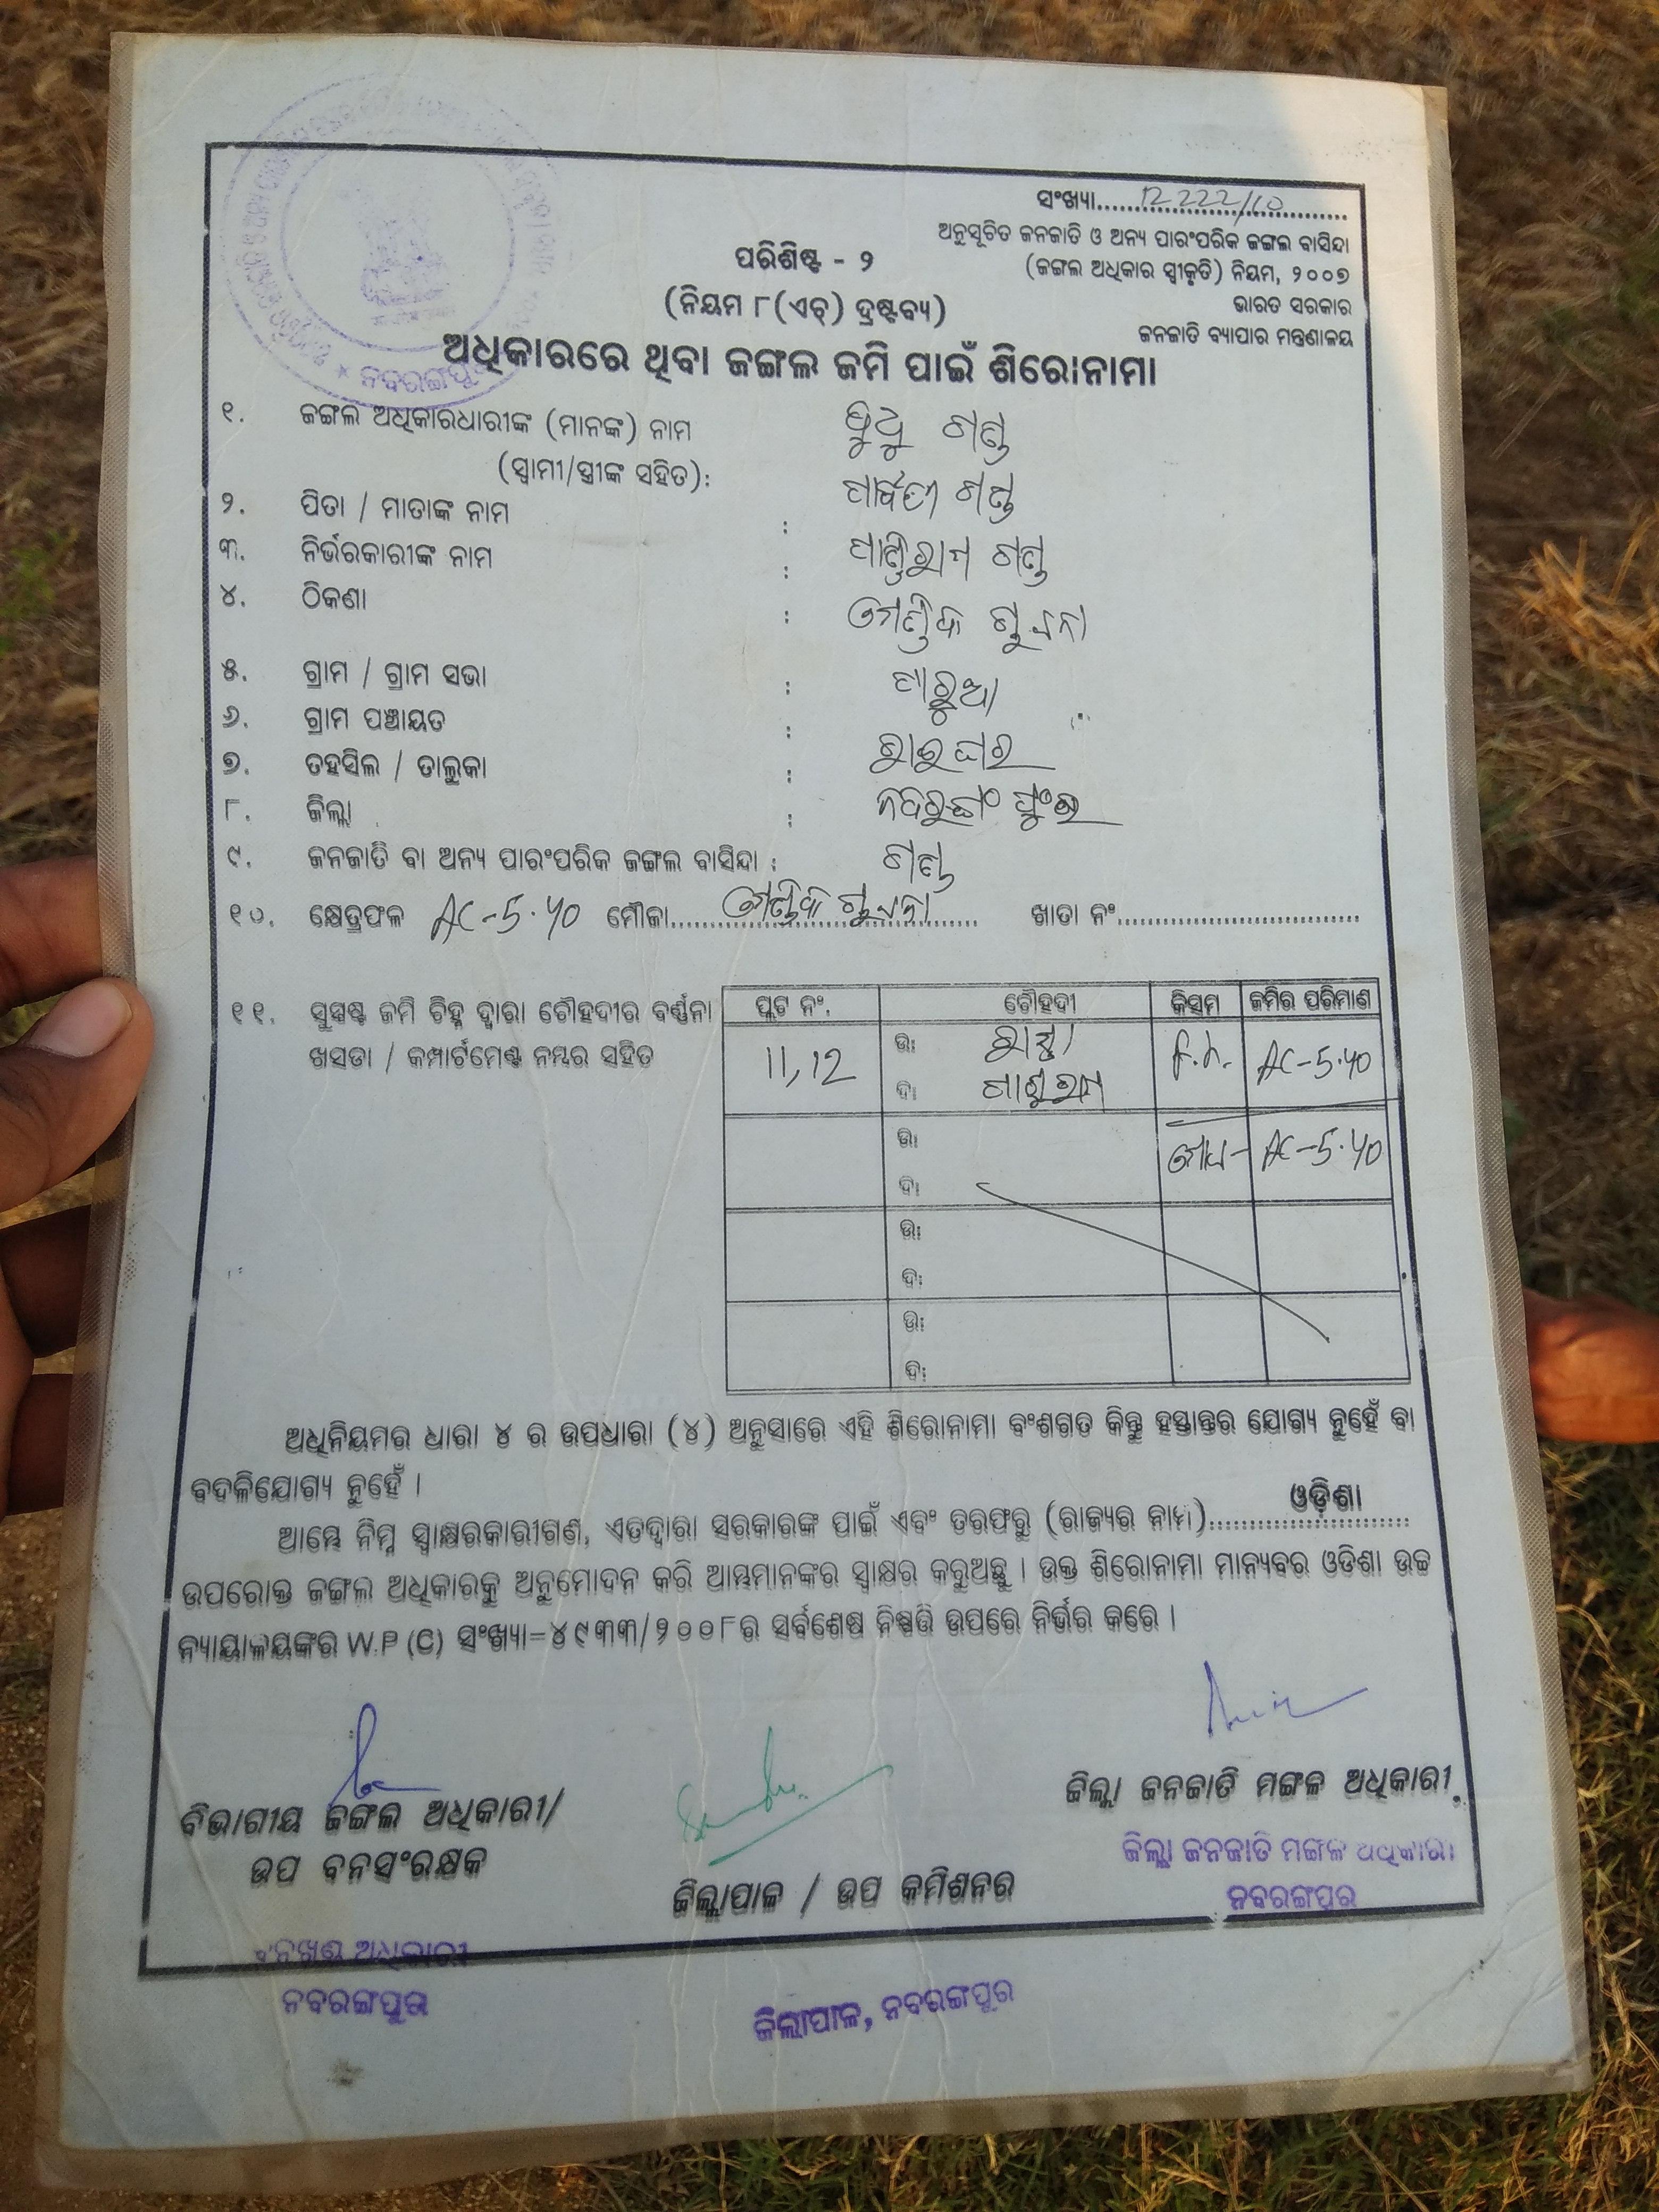 ସଂଖ୍ୟା.......12222/10.......
ଅନୁସୂଚିତ ଜନଜାତି ଓ ଅନ୍ୟ ପାରଂପରିକ ଜଙ୍ଗଲ ବାସିନ୍ଦା
(ଜଙ୍ଗଲ ଅଧିକାର ସ୍ୱୀକୃତି) ନିୟମ, ୨୦୦୭
ଭାରତ ସରକାର
ଜନଜାତି ବ୍ୟାପାର ମନ୍ତ୍ରଣାଳୟ
ପରିଶିଷ୍ଟ - ୨
(ନିୟମ ୮(ଏଚ୍) ଦ୍ରଷ୍ଟବ୍ୟ)
ଅଧିକାରରେ ଥିବା ଜଙ୍ଗଲ ଜମି ପାଇଁ ଶିରୋନାମା
ନବରଙ୍ଗପୁର
୧. ଜଙ୍ଗଲ ଅଧିକାରଧାରୀଙ୍କ (ମାନଙ୍କ) ନାମ ଗଣ୍ଡ
(ସ୍ୱାମୀ/ସ୍ତ୍ରୀଙ୍କ ସହିତ): ପାର୍ବତୀ ଗଣ୍ଡ
୨. ପିତା / ମାତାଙ୍କ ନାମ : ଗଣ୍ଡ
୩. ନିର୍ଭରକାରୀଙ୍କ ନାମ :
୪. ଠିକଣା :
୫. ଗ୍ରାମ / ଗ୍ରାମ ସଭା :
୬. ଗ୍ରାମ ପଞ୍ଚାୟତ : ପାରୁଆ
୭. ତହସିଲ / ତାଲୁକା : ରାଇଘର
୮. ଜିଲ୍ଲା :
୯. ଜନଜାତି ବା ଅନ୍ୟ ପାରଂପରିକ ଜଙ୍ଗଲ ବାସିନ୍ଦା : ଗଣ୍ଡ
୧୦. କ୍ଷେତ୍ରଫଳ AC-5.40 ମୌଜା.............. ଖାତା ନଂ..............
୧୧. ସୁସ୍ପଷ୍ଟ ଜମି ଚିହ୍ନ ଦ୍ୱାରା ଚୌହଦୀର ବର୍ଣ୍ଣନା
ଖସଡା / କମ୍ପାର୍ଟମେଣ୍ଟ ନମ୍ବର ସହିତ
ପ୍ଲଟ ନଂ. ଚୌହଦୀ କିସମ ଜମିର ପରିମାଣ
11,12 ଉଃ ରାସ୍ତା AC-5.40
ଦଃ
ଉଃ AC-5.40
ଦଃ
ଉଃ
ଦଃ
ଉଃ
ଦଃ
ଅଧିନିୟମର ଧାରା ୪ ର ଉପଧାରା (୪) ଅନୁସାରେ ଏହି ଶିରୋନାମା ବଂଶଗତ କିନ୍ତୁ ହସ୍ତାନ୍ତର ଯୋଗ୍ୟ ନୁହେଁ ବା
ବଦଳିଯୋଗ୍ୟ ନୁହେଁ ।
ଆମ୍ଭେ ନିମ୍ନ ସ୍ୱାକ୍ଷରକାରୀଗଣ, ଏତଦ୍ୱାରା ସରକାରଙ୍କ ପାଇଁ ଏବଂ ତରଫରୁ (ରାଜ୍ୟର ନାମ).......ଓଡ଼ିଶା.......
ଉପରୋକ୍ତ ଜଙ୍ଗଲ ଅଧିକାରକୁ ଅନୁମୋଦନ କରି ଆମ୍ଭମାନଙ୍କର ସ୍ୱାକ୍ଷର କରୁଅଛୁ । ଉକ୍ତ ଶିରୋନାମା ମାନ୍ୟବର ଓଡିଶା ଉଚ୍ଚ
ନ୍ୟାୟାଳୟଙ୍କର W.P (C) ସଂଖ୍ୟା=୪୯୩୩/୨୦୦୮ର ସର୍ବଶେଷ ନିଷ୍ପତ୍ତି ଉପରେ ନିର୍ଭର କରେ ।
ବିଭାଗୀୟ ଜଙ୍ଗଲ ଅଧିକାରୀ/
ଉପ ବନସଂରକ୍ଷକ
ବନଖଣ୍ଡ ଅଧିକାରୀ
ନବରଙ୍ଗପୁର
ଜିଲ୍ଲାପାଳ / ଉପ କମିଶନର
ଜିଲ୍ଲାପାଳ, ନବରଙ୍ଗପୁର
ଜିଲ୍ଲା ଜନଜାତି ମଙ୍ଗଳ ଅଧିକାରୀ
ଜିଲ୍ଲା ଜନଜାତି ମଙ୍ଗଳ ଅଧିକାରୀ
ନବରଙ୍ଗପୁର